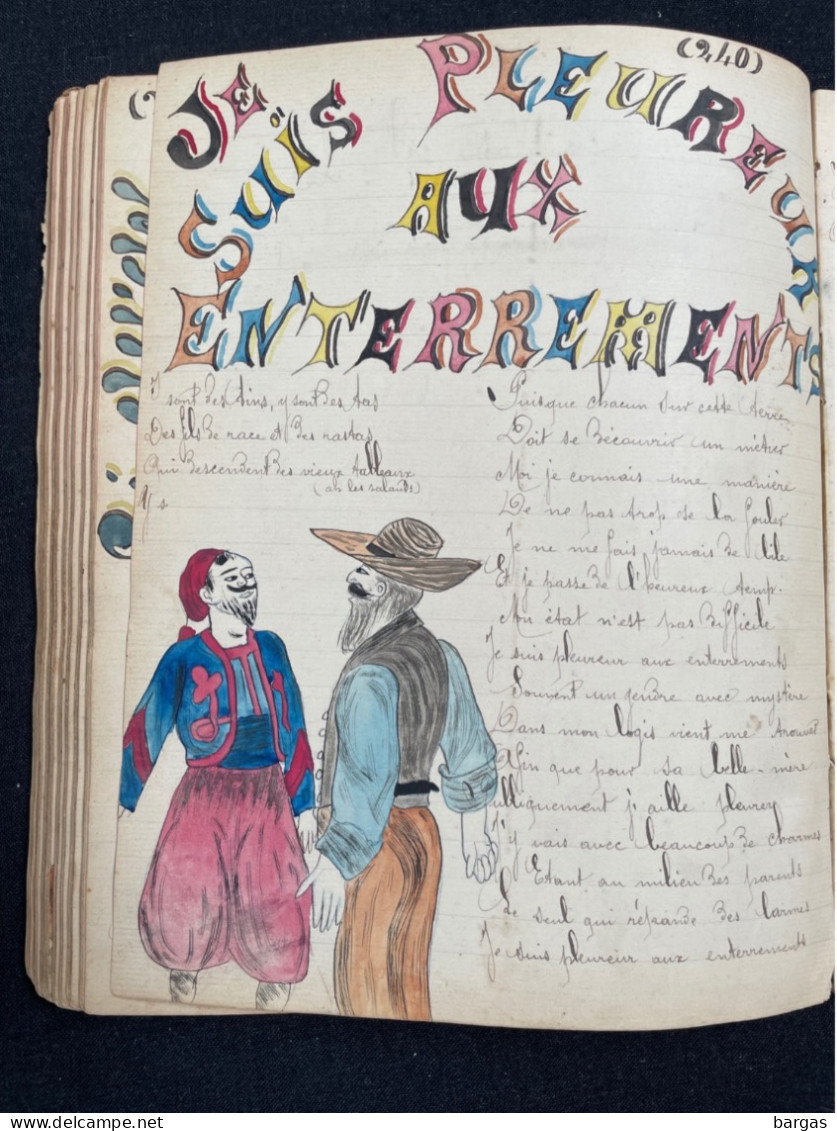 (240)
JE SUIS PLEUREUX
AUX
ENTERREMENTS
Y sont des tins, y sont des tas
Des fils de race et des rastas
Qui descendent des vieux tableaux
(ah les salauds)
Y s
Puisque chacun sur cette terre
Doit se découvrir un métier
Moi je connais une manière
De ne pas trop se la fouler
Je ne me fais jamais de bile
Et je passe de l'heureux temp.
Mon état n'est pas difficile
Je suis pleureur aux enterrements
Souvent un gendre avec mystère
Dans mon logis vient me trouver
Afin que pour sa belle-mère
publiquement j'aille pleurer
J'y vais avec beaucoup de charmes
Etant au milieu des parents
Le seul qui répande des larmes
Je suis pleureur aux enterrements
bargas